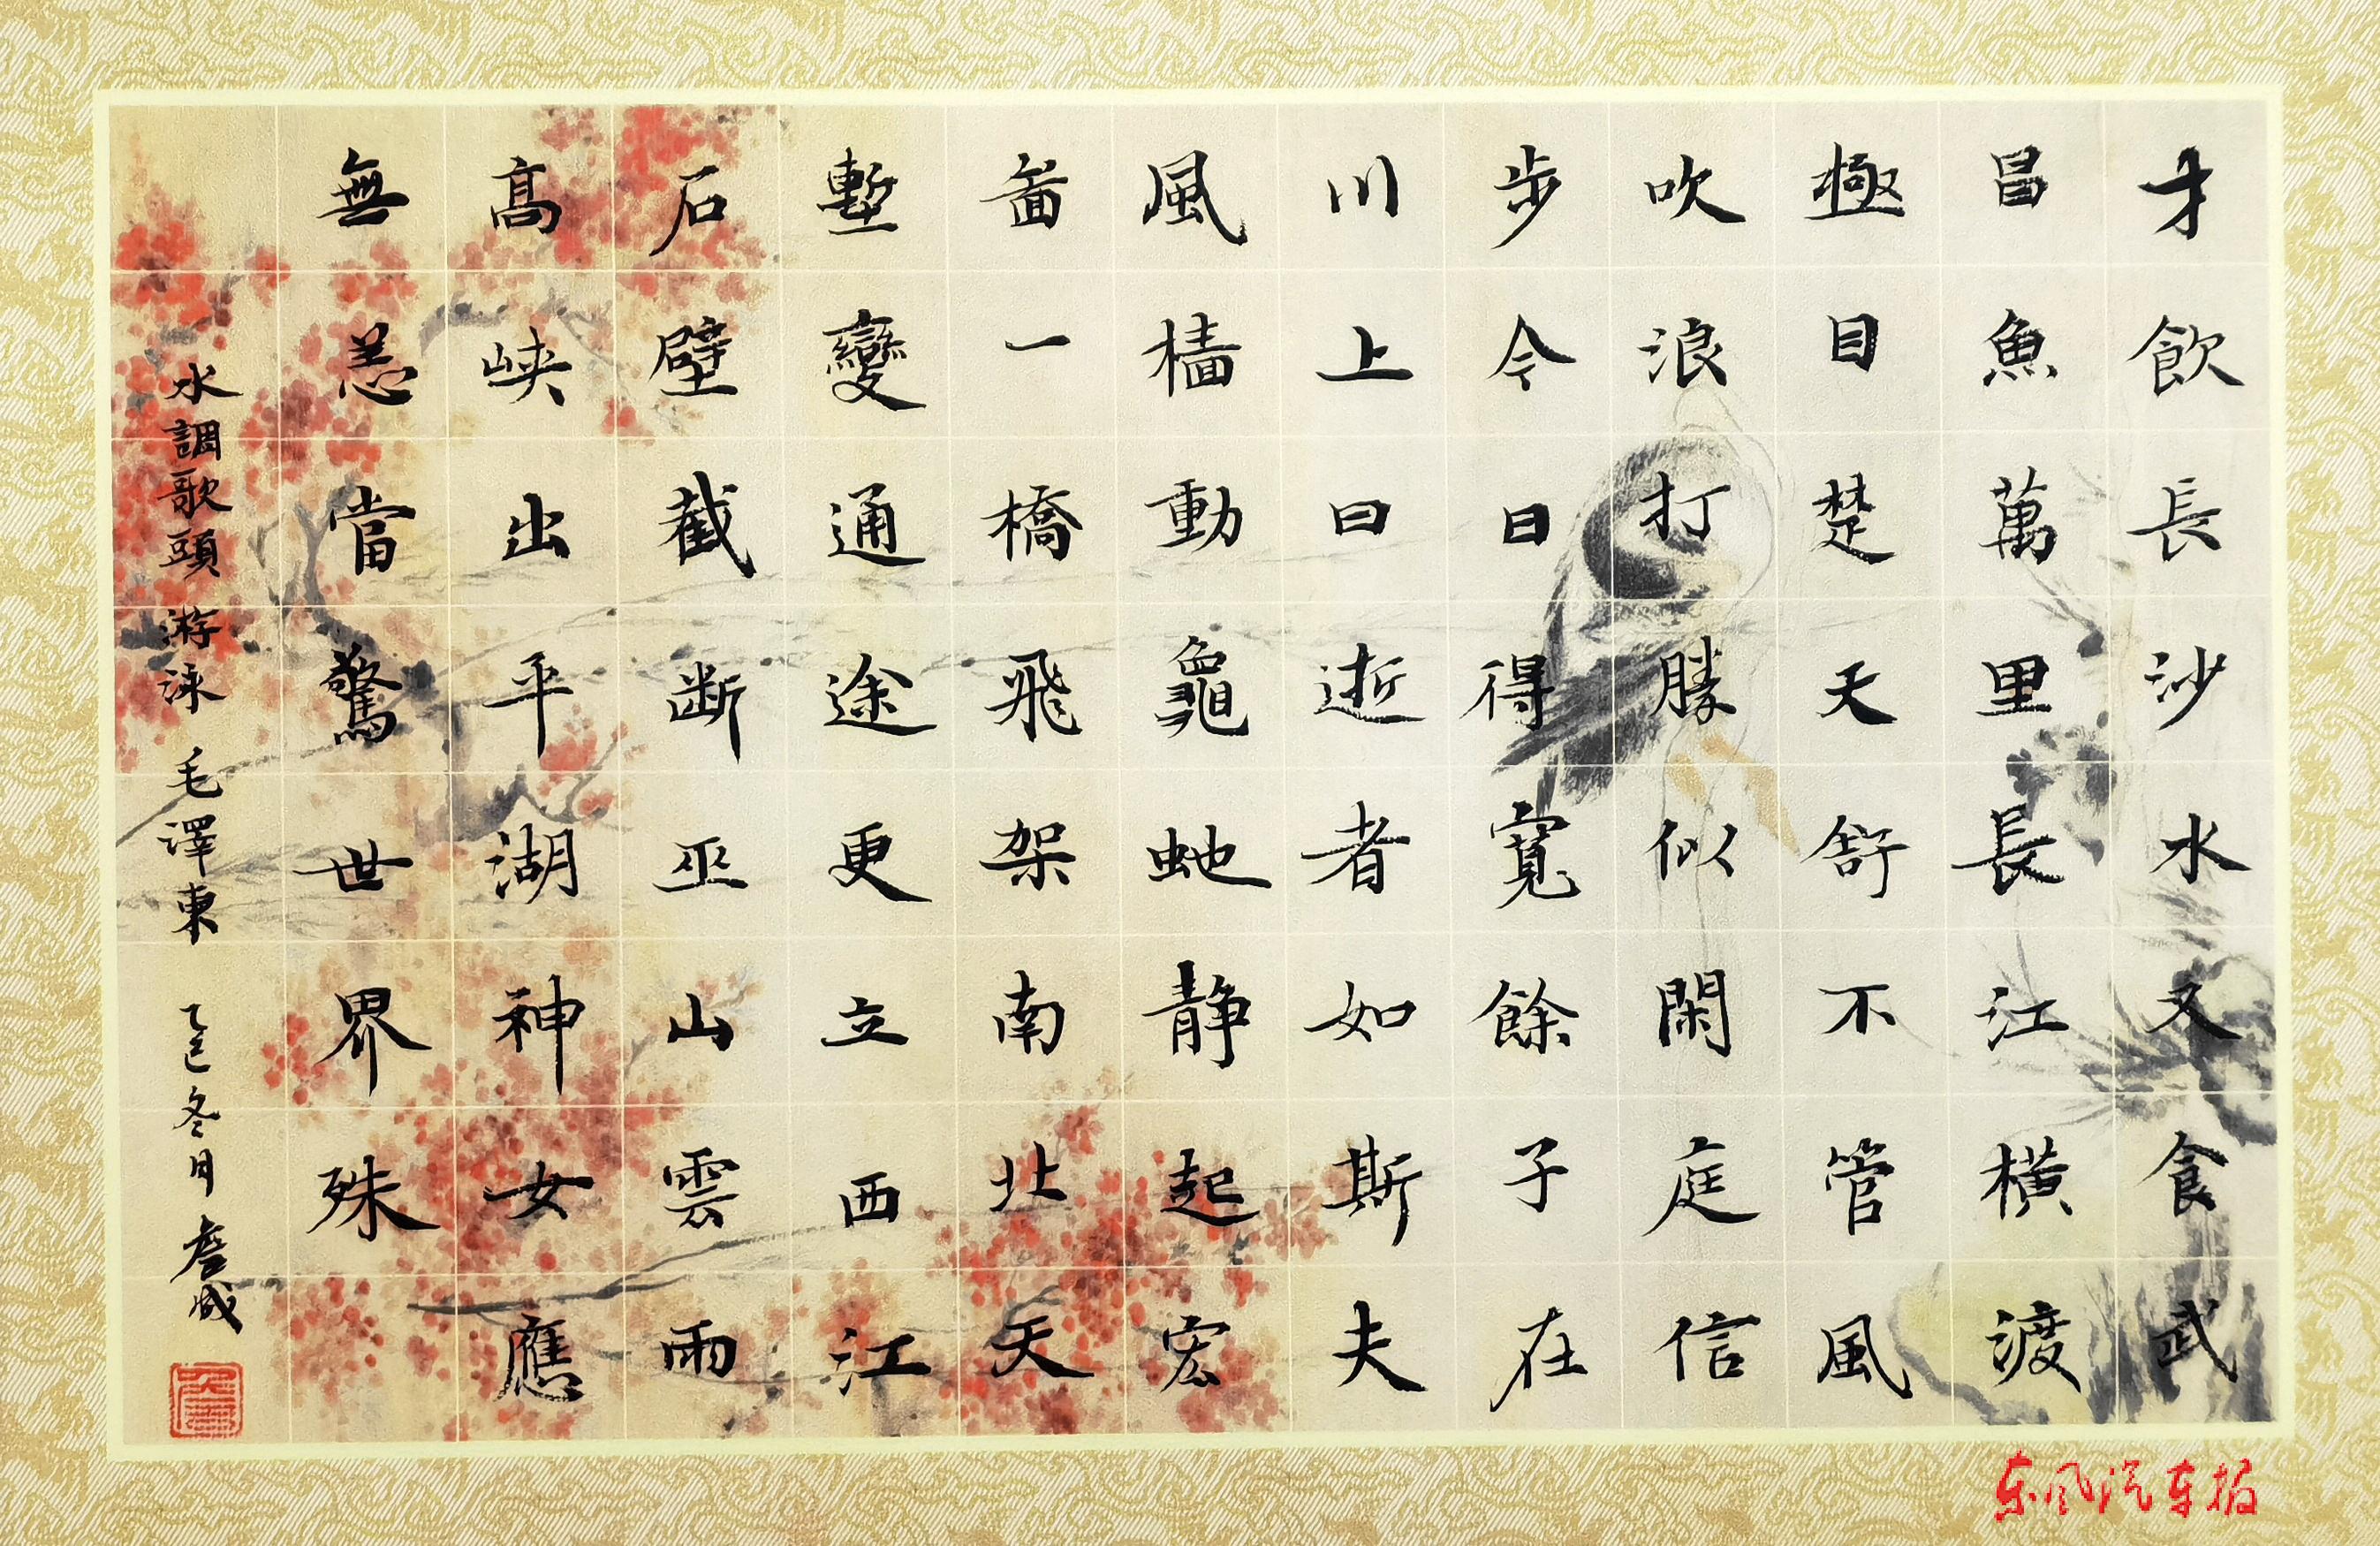 才飲長沙水又食武
昌魚萬里長江橫渡
極目楚天舒不管風
吹浪打勝似閑庭信
步今日得寬餘子在
川上曰逝者如斯夫
風檣動龜虵静起宏
啚一橋飛架南北天
塹變通途更立西江
石壁截断巫山雲雨
高峡出平湖神女應
無恙當驚世界殊
水調歌頭 游泳 毛澤東 乙巳冬月
东风汽车报